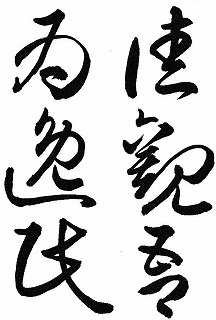 觀吾
為逸民